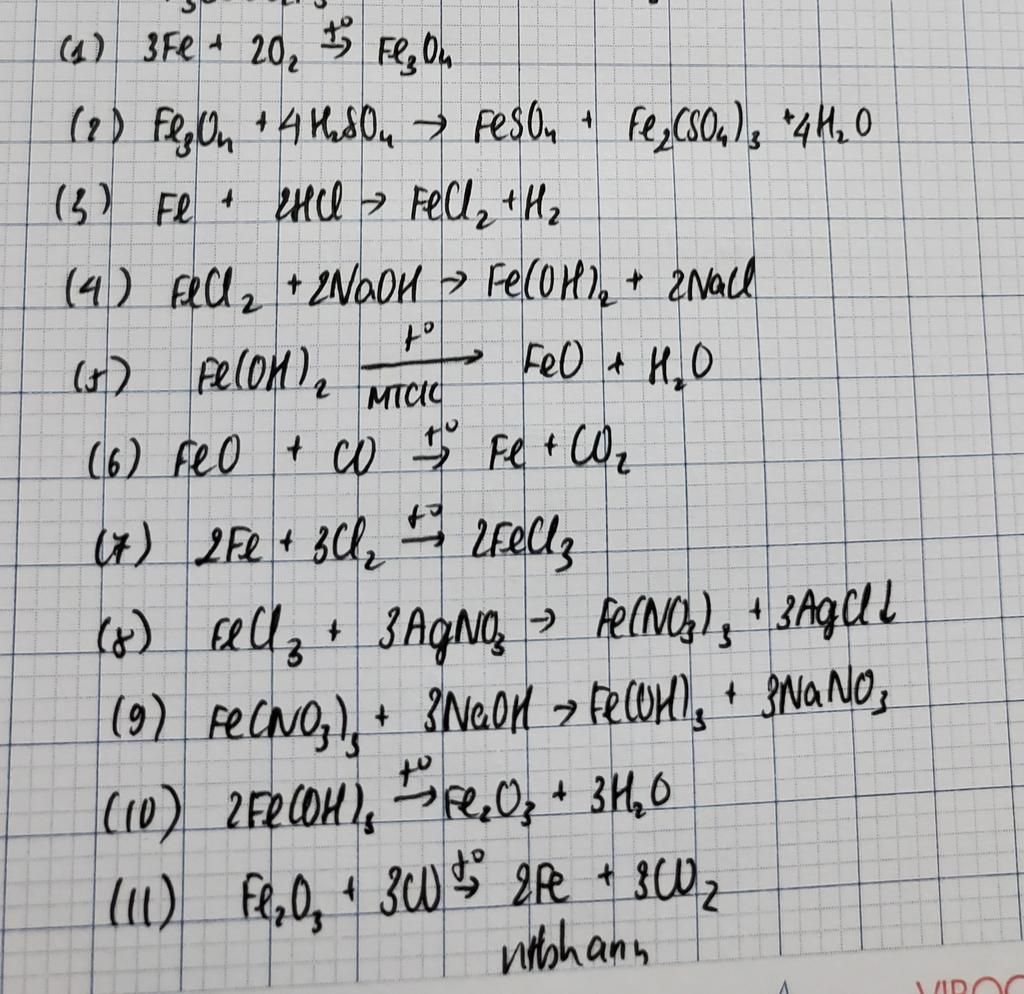 (1) 3Fe + 2O₂ →t° Fe₃O₄
(2) Fe₃O₄ + 4H₂SO₄ → FeSO₄ + Fe₂(SO₄)₃ + 4H₂O
(3) Fe + 2HCl → FeCl₂ + H₂
(4) FeCl₂ + 2NaOH → Fe(OH)₂ + 2NaCl
(5) Fe(OH)₂ →t° MTCK FeO + H₂O
(6) FeO + CO →t° Fe + CO₂
(7) 2Fe + 3Cl₂ →t° 2FeCl₃
(8) FeCl₃ + 3AgNO₃ → Fe(NO₃)₃ + 3AgCl↓
(9) Fe(NO₃)₃ + 3NaOH → Fe(OH)₃ + 3NaNO₃
(10) 2Fe(OH)₃ →t° Fe₂O₃ + 3H₂O
(11) Fe₂O₃ + 3CO →t° 2Fe + 3CO₂